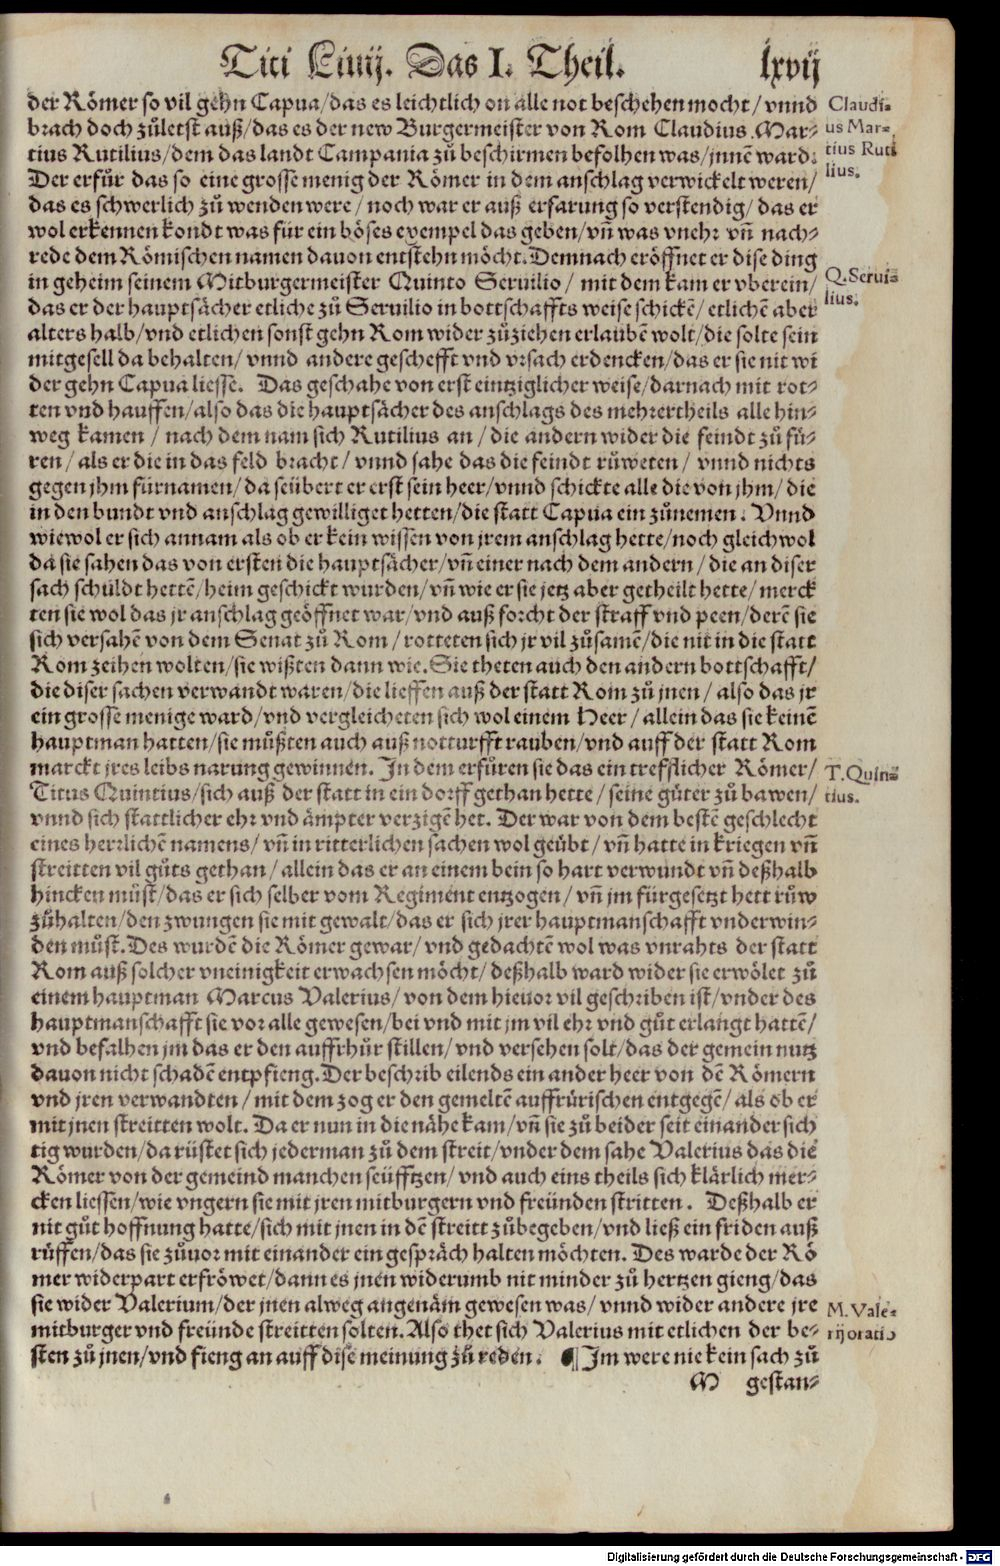 Titi Liuij. Das I. Theil. lxvij
der Römer so vil gehn Capua/das es leichtlich on alle not beschehen mocht/vnnd
brach doch zůletst auß/das es der new Burgermeister von Rom Claudius Mar-
tius Rutilius/dem das landt Campania zů beschirmen befolhen was/jnnē ward.
Der erfůr das so eine grosse menig der Römer in dem anschlag verwickelt weren/
das es schwerlich zů wenden were/noch war er auß erfarung so verstendig/das er
wol erkennen kondt was für ein böses exempel das geben/vñ was vnehr vñ nach-
rede dem Römischen namen dauon entstehn möcht. Demnach eröffnet er dise ding
in geheim seinem Mitburgermeister Quinto Seruilio/mit dem kam er vberein/
das er der hauptsächer etliche zů Seruilio in bottschaffts weise schickē/etlichē aber
alters halb/vnd etlichen sonst gehn Rom wider zůziehen erlaubē wolt/die solte sein
mitgesell da behalten/vnnd andere geschefft vnd vrsach erdencken/das er sie nit wi
der gehn Capua liesse. Das geschahe von erst eintziglicher weise/darnach mit rot-
ten vnd hauffen/also das die hauptsächer des anschlags des mehrertheils alle hin-
weg kamen/nach dem nam sich Rutilius an/die andern wider die feindt zů fü-
ren/als er die in das feld bracht/vnnd sahe das die feindt růweten/vnnd nichts
gegen jhm fürnamen/da seübert er erst sein heer/vnnd schickte alle die von jhm/die
in den bundt vnd anschlag gewilliget hetten/die statt Capua ein zůnemen. Vnnd
wiewol er sich annam als ob er kein wissen von jrem anschlag hette/noch gleichwol
da sie sahen das von ersten die hauptsächer/vñ einer nach dem andern/die an diser
sach schuldt hettē/heim geschickt wurden/vñ wie er sie jetz aber getheilt hette/merck
ten sie wol das jr anschlag geöffnet war/vnd auß forcht der straff vnd peen/derē sie
sich versahē von dem Senat zů Rom/rotteten sich jr vil zůsamē/die nit in die statt
Rom zeihen wolten/sie wißten dann wie. Sie theten auch den andern bottschafft/
die diser sachen verwandt waren/die lieffen auß der statt Rom zů jnen/also das jr
ein grosse menige ward/vnd vergleicheten sich wol einem Heer/allein das sie keinē
hauptman hatten/sie můßten auch auß notturfft rauben/vnd auff der statt Rom
marckt jres leibs narung gewinnen. In dem erfůren sie das ein trefflicher Römer/
Titus Quintius/sich auß der statt in ein dorff gethan hette/seine güter zů bawen/
vnnd sich stattlicher ehr vnd ämpter verzigē het. Der war von dem bestē geschlecht
eines herrlichē namens/vñ in ritterlichen sachen wol geübt/vñ hatte in kriegen vñ
streitten vil gůts gethan/allein das er an einem bein so hart verwundt vñ deßhalb
hincken můst/das er sich selber vom Regiment entzogen/vñ jm fürgesetzt hett růw
zůhalten/den zwungen sie mit gewalt/das er sich jrer hauptmanschafft vnderwin-
den můst. Des wurdē die Römer gewar/vnd gedachtē wol was vnrahts der statt
Rom auß solcher vneinigkeit erwachsen möcht/deßhalb ward wider sie erwölet zů
einem hauptman Marcus Valerius/von dem hieuor vil geschriben ist/vnder des
hauptmanschafft sie vor alle gewesen/bei vnd mit jm vil ehr vnd gůt erlangt hattē/
vnd befalhen jm das er den auffrhůr stillen/vnd versehen solt/das der gemein nutz
dauon nicht schadē entpfieng. Der beschrib eilends ein ander heer von dē Römern
vnd jren verwandten/mit dem zog er den gemeltē auffrürischen entgegē/als ob er
mit jnen streitten wolt. Da er nun in die nähe kam/vñ sie zů beider seit einander sich
tig wurden/da rüstet sich jederman zů dem streit/vnder dem sahe Valerius das die
Römer von der gemeind manchen seüfftzen/vnd auch eins theils sich klärlich mer-
cken liessen/wie vngern sie mit jren mitburgern vnd freünden stritten. Deßhalb er
nit gůt hoffnung hatte/sich mit jnen in dē streitt zůbegeben/vnd ließ ein friden auß
rüffen/das sie zůuor mit einander ein gespräch halten möchten. Des warde der Rö
mer widerpart erfröwet/dann es jnen widerumb nit minder zů hertzen gieng/das
sie wider Valerium/der jnen alweg angenäm gewesen was/vnnd wider andere jre
mitburger vnd freünde streitten solten. Also thet sich Valerius mit etlichen der be-
sten zů jnen/vnd fieng an auff dise meinung zů reden. ¶ Im were nie kein sach zů
M gestan-
Claudi-
us Mar-
tius Ruti
lius.
Q. Serui-
lius.
T. Quin-
tius.
M. Vale-
rij oratio
Digitalisierung gefördert durch die Deutsche Forschungsgemeinschaft - DFG